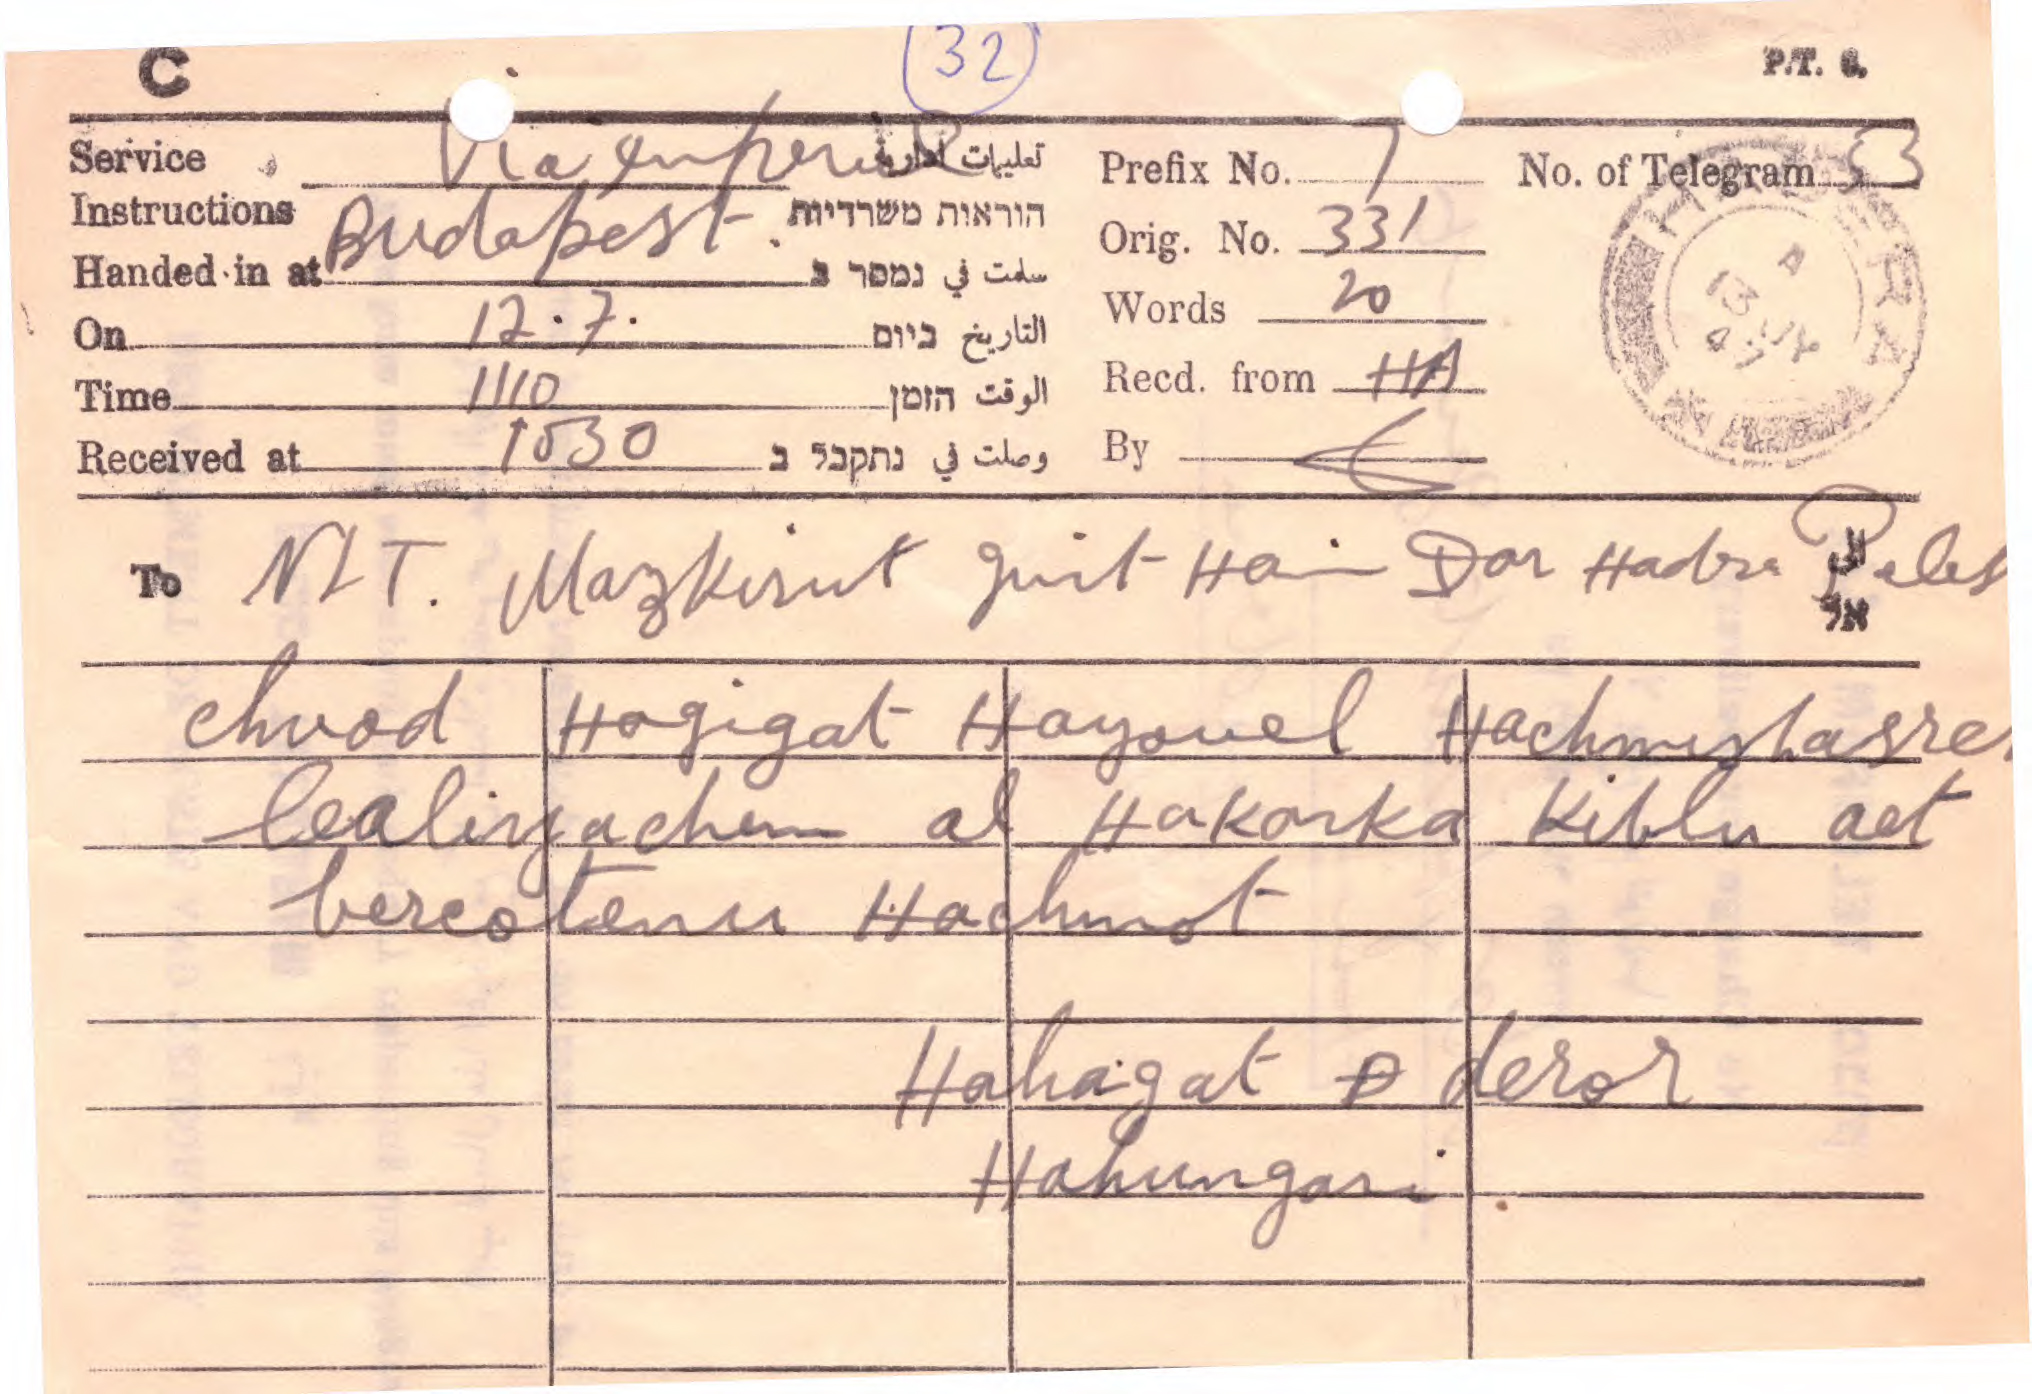 32
C P.T. 6.
Service Via Imperial تعليمات ادارية
Instructions הוראות משרדיות
Handed in at Budapest. سلمت في נמסר ב
On 12.7. التاريخ ביום
Time 1110 الوقت הזמן
Received at 1030 وصلت في נתקבל ב
Prefix No. No. of Telegram 53
Orig. No. 331
Words 20
Recd. from HA
By
HADERA
To NLT. Mazkirut Hadra Pales الى
אל
chvod Hagigat Hayovel Hachmishasre
lealiyachem al Hakarka Kiblu aet
bercotenu Hachmot
Hahagat D deror
Hahungari